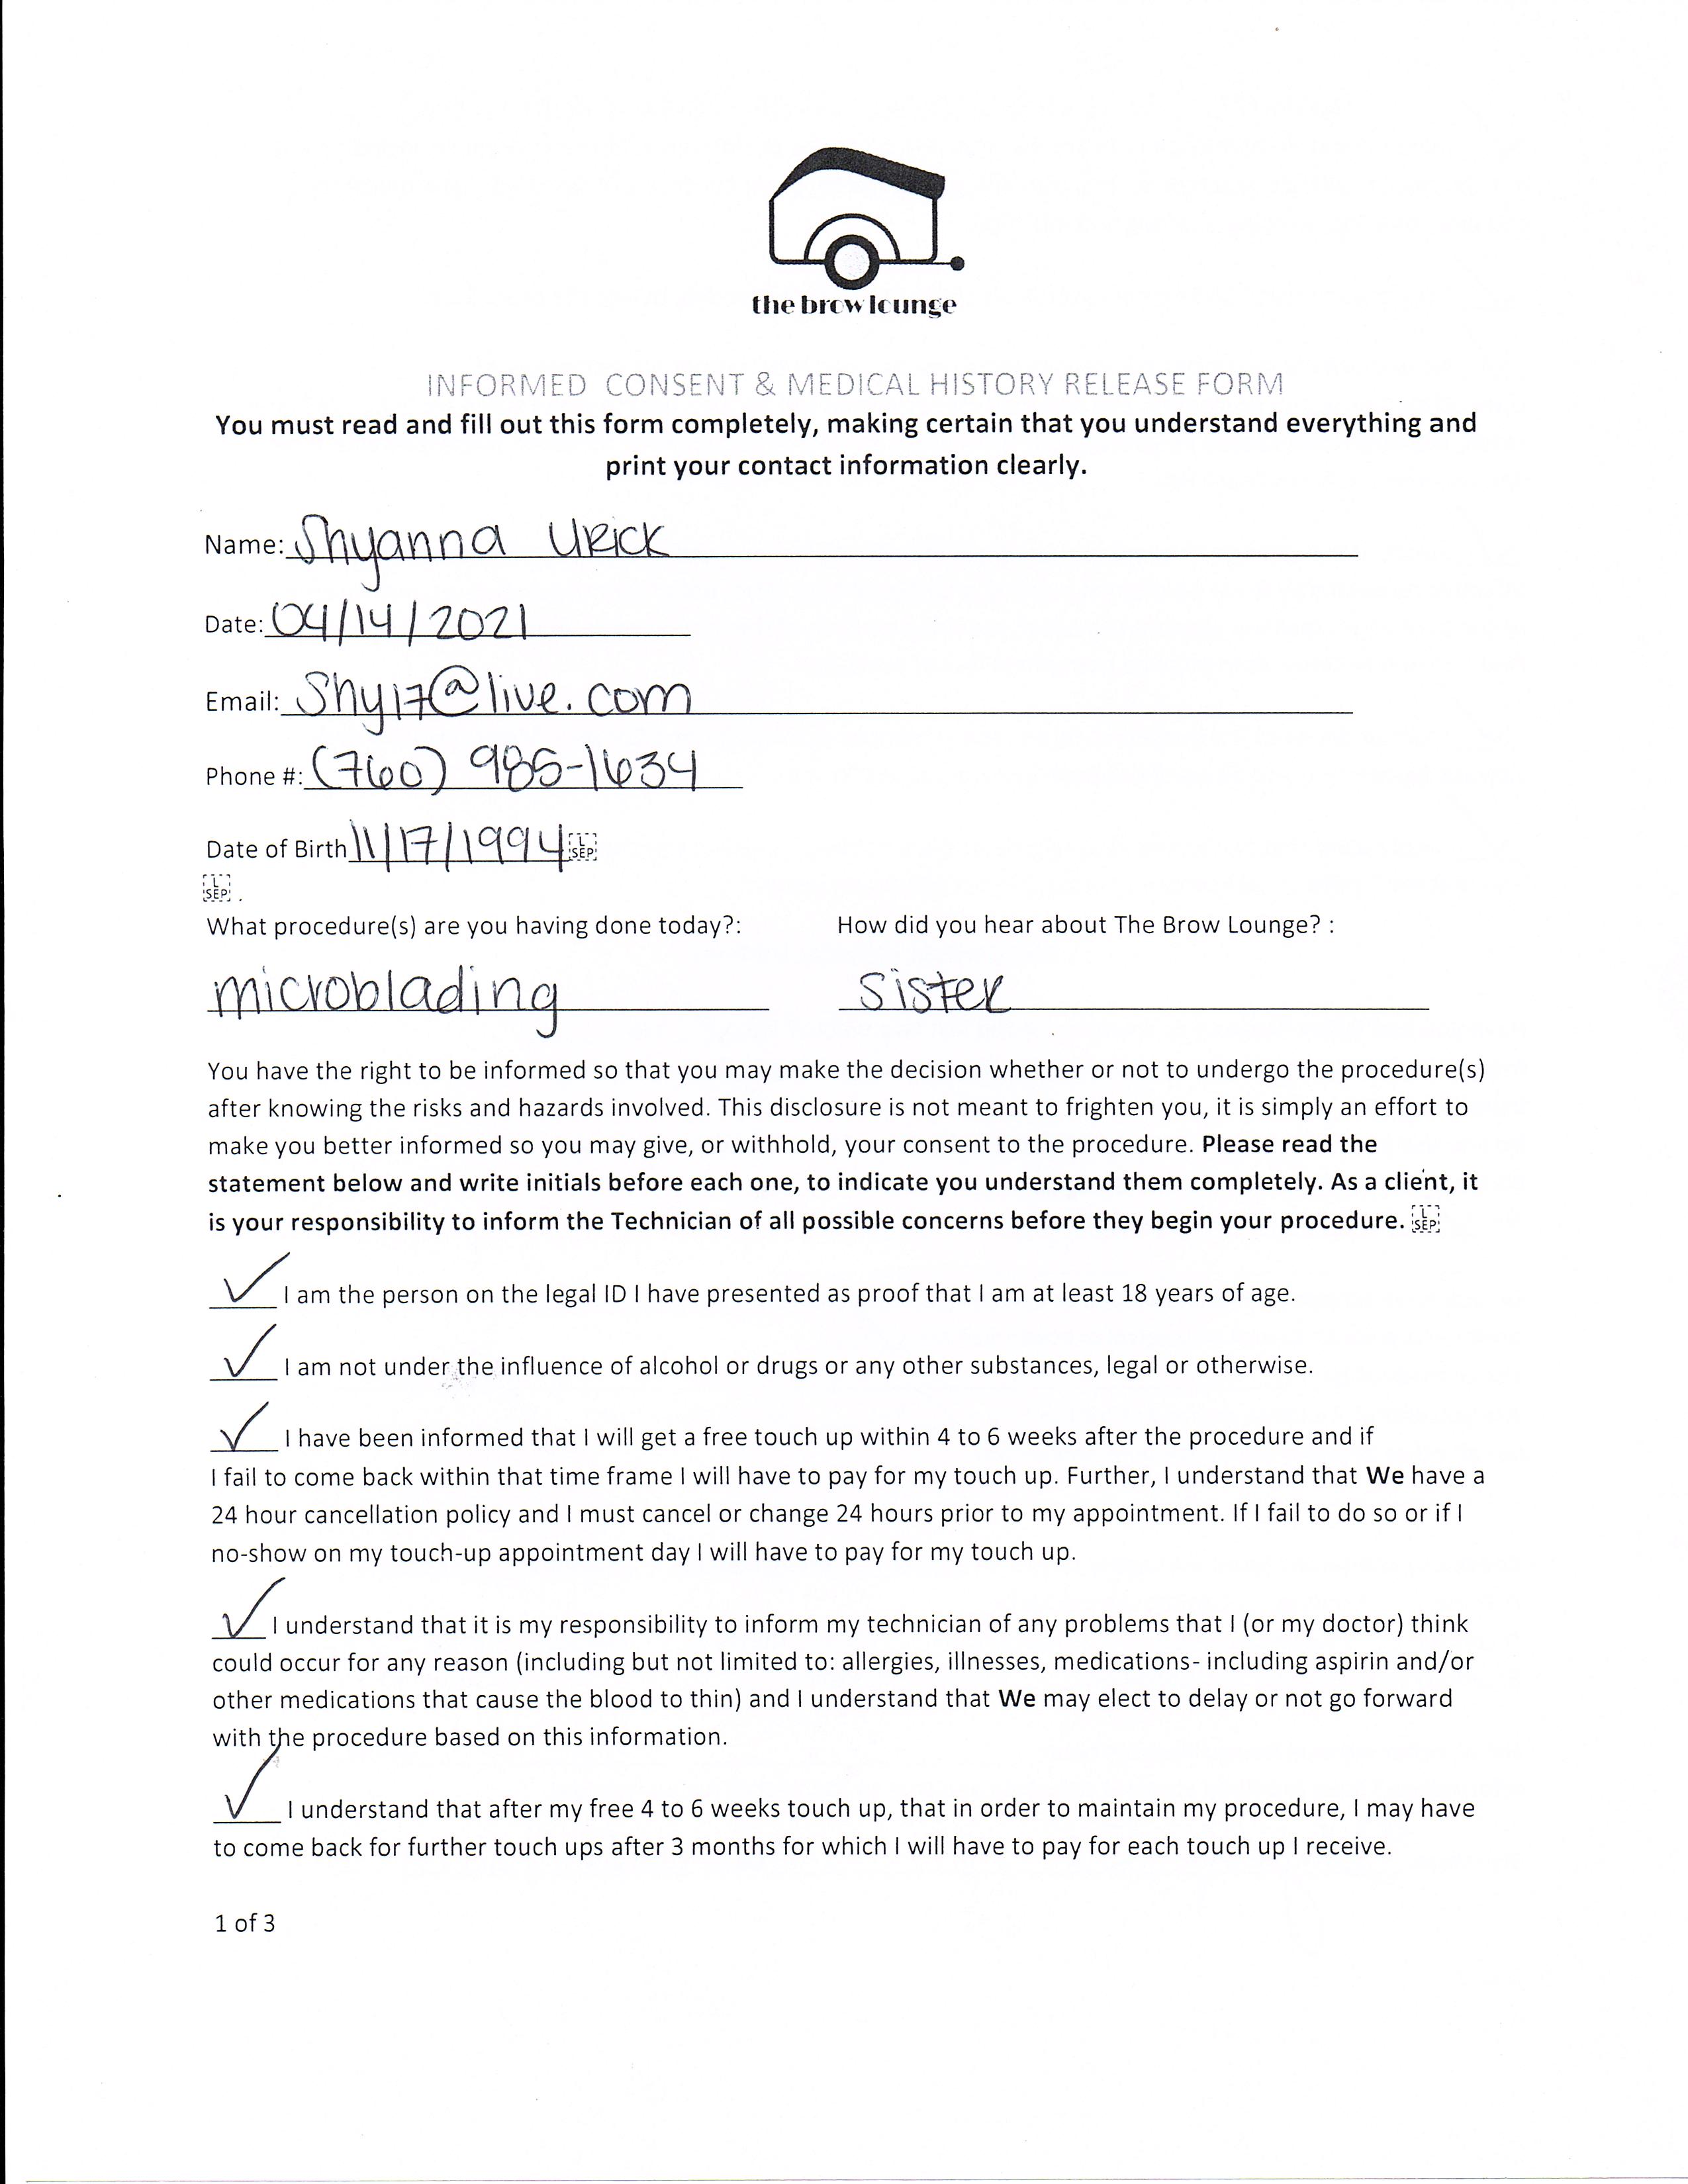 the brow lounge
INFORMED CONSENT & MEDICAL HISTORY RELEASE FORM
You must read and fill out this form completely, making certain that you understand everything and
print your contact information clearly.
Name: Shyanna Urick
Date: 04/14/2021
Email: Shy17@live.com
Phone #: (760) 985-1634
Date of Birth 11/17/1994 L SEP
L SEP .
What procedure(s) are you having done today?: How did you hear about The Brow Lounge? :
microblading sister
You have the right to be informed so that you may make the decision whether or not to undergo the procedure(s)
after knowing the risks and hazards involved. This disclosure is not meant to frighten you, it is simply an effort to
make you better informed so you may give, or withhold, your consent to the procedure. Please read the
statement below and write initials before each one, to indicate you understand them completely. As a client, it
is your responsibility to inform the Technician of all possible concerns before they begin your procedure. L SEP
✓ I am the person on the legal ID I have presented as proof that I am at least 18 years of age.
✓ I am not under the influence of alcohol or drugs or any other substances, legal or otherwise.
✓ I have been informed that I will get a free touch up within 4 to 6 weeks after the procedure and if
I fail to come back within that time frame I will have to pay for my touch up. Further, I understand that We have a
24 hour cancellation policy and I must cancel or change 24 hours prior to my appointment. If I fail to do so or if I
no-show on my touch-up appointment day I will have to pay for my touch up.
✓ I understand that it is my responsibility to inform my technician of any problems that I (or my doctor) think
could occur for any reason (including but not limited to: allergies, illnesses, medications- including aspirin and/or
other medications that cause the blood to thin) and I understand that We may elect to delay or not go forward
with the procedure based on this information.
✓ I understand that after my free 4 to 6 weeks touch up, that in order to maintain my procedure, I may have
to come back for further touch ups after 3 months for which I will have to pay for each touch up I receive.
1 of 3